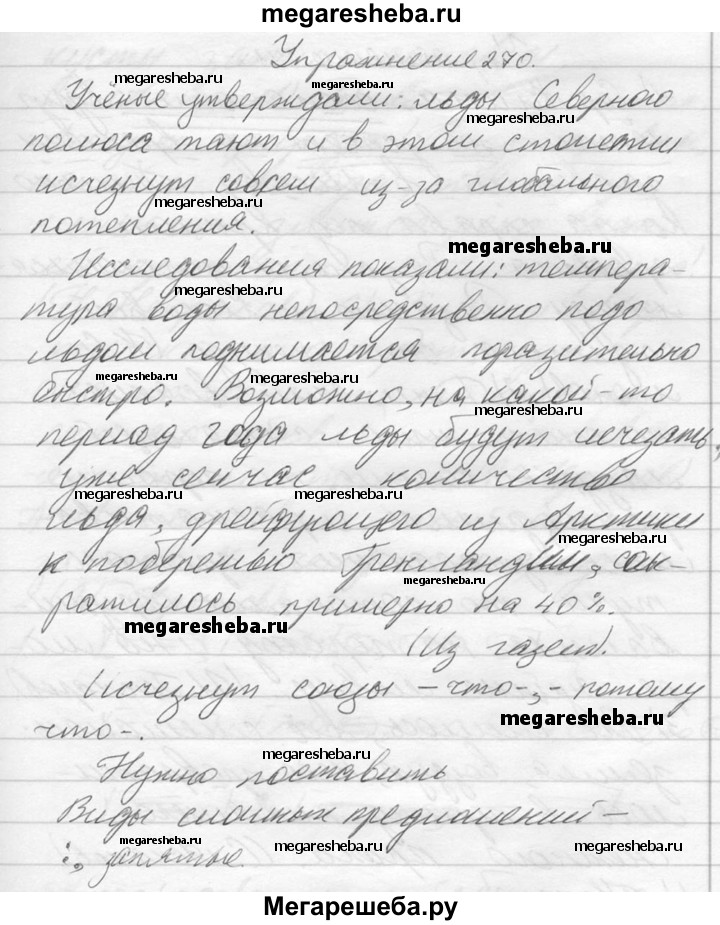 megaresheba.ru
Упражнение 270.
megaresheba.ru
Учёные утверждали: льды Северного
megaresheba.ru
полюса тают и в этом столетии
исчезнут совсем из-за глобального
megaresheba.ru
потепления.
megaresheba.ru
Исследования показали: темпера-
megaresheba.ru
тура воды непосредственно подо
льдом поднимается поразительно
megaresheba.ru megaresheba.ru
быстро. Возможно, на какой-то
megaresheba.ru
период года льды будут исчезать,
уже сейчас количество
megaresheba.ru megaresheba.ru
льда, дрейфующего из Арктики
megaresheba.ru
к побережью Гренландии, сок-
megaresheba.ru
ратилось примерно на 40%.
megaresheba.ru
(Из газет).
Исчезнут союзы -что-, - потому
megaresheba.ru
что-.
megaresheba.ru
Нужно поставить
Виды сложных предложений –
megaresheba.ru megaresheba.ru
:, запятые.
Мегарешеба.ру